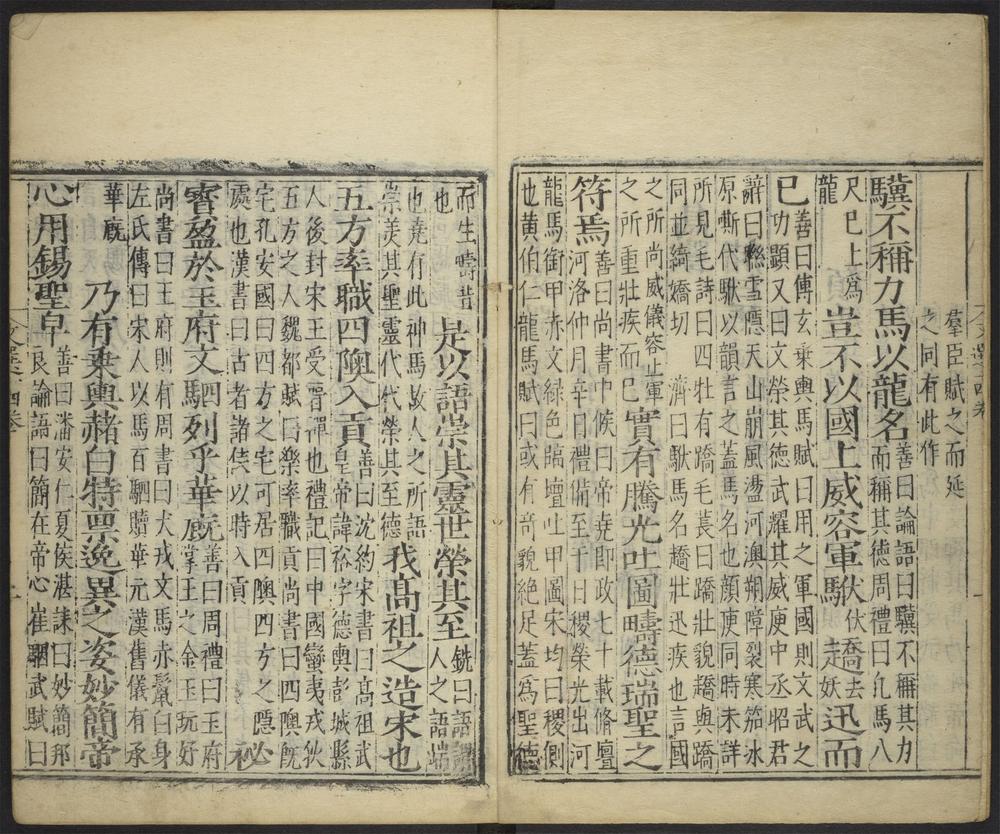 羣臣賦之而延
之同有此作
驥不稱力馬以龍名
善曰論語曰驥不稱其力
而稱其德周禮曰凡馬八
尺已上爲
龍
豈不以國上威容軍䭾伏趫去妖迅而
已
善曰傅玄乗輿馬賦曰用之軍國則文武之
功顯又曰文榮其德武耀其威庾中丞昭君
辭曰縣雪隱天山崩風盪河澳朔障裂寒笳氷
原嘶代䭾以韻言之蓋馬名也顔庾同時未詳
所見毛詩曰四牡有蹻毛萇曰蹻壯貌趫與蹻
同並綺嬌切　濟曰䭾馬名趫壯迅疾也言國
之所尚威儀容止軍
之所重壯疾而已
實有騰光吐圖疇德瑞聖之
符焉
善曰尚書中候曰帝堯即政七十載脩壇
河洛仲月辛日禮備至于日稷榮光出河
龍馬銜甲赤文緑色臨壇吐甲圖宋均曰稷側
也黄伯仁龍馬賦曰或有竒貌絶足蓋爲聖德
而生疇昔
也
是以語崇其靈世榮其至
銑曰語謂
人之語端
也堯有此神馬故人之所語
崇美其聖靈代代榮其至德
我髙祖之造宋也
五方率職四隩入貢
善曰沈約宋書曰髙祖武
皇帝諱裕字德輿彭城縣
人後封宋王受晉禪也禮記曰中國蠻夷戎狄
五方之人魏都賦曰樂率職貢尚書曰四隩旣
宅孔安國曰四方之宅可居四隩四方之隱
處也漢書曰古者諸侯以時入貢
祕
寶盈於玉府文駟列乎華廐
善曰周禮曰玉府
掌王之金玉玩好
尚書曰王府則有周書曰犬戎文馬赤鬣白身
左氏傳曰宋人以馬百駟贖華元漢舊儀有承
華廐
乃有乗輿赭白特禀逸異之姿妙簡帝
心用錫聖皁
善曰潘安仁夏侯湛誄曰妙簡邦
良論語曰簡在帝心崔駰武賦曰